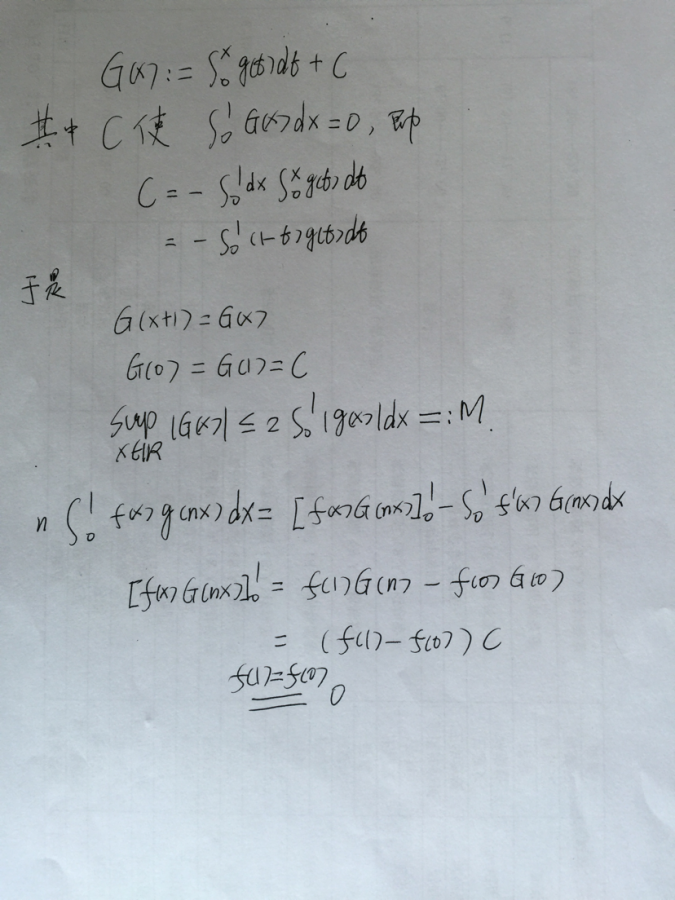 G(x) := ∫₀ˣ g(t)dt + C
其中 C 使 ∫₀¹ G(x)dx = 0, 即
C = - ∫₀¹dx ∫₀ˣ g(t)dt
= - ∫₀¹ (1-t)g(t)dt
于是
G(x+1) = G(x)
G(0) = G(1) = C
sup_{x∈ℝ} |G(x)| ≤ 2 ∫₀¹ |g(x)|dx =: M.
n ∫₀¹ f(x) g(nx) dx = [f(x)G(nx)]₀¹ - ∫₀¹ f'(x) G(nx)dx
[f(x)G(nx)]₀¹ = f(1)G(n) - f(0)G(0)
= (f(1) - f(0)) C
f(1)=f(0) == 0